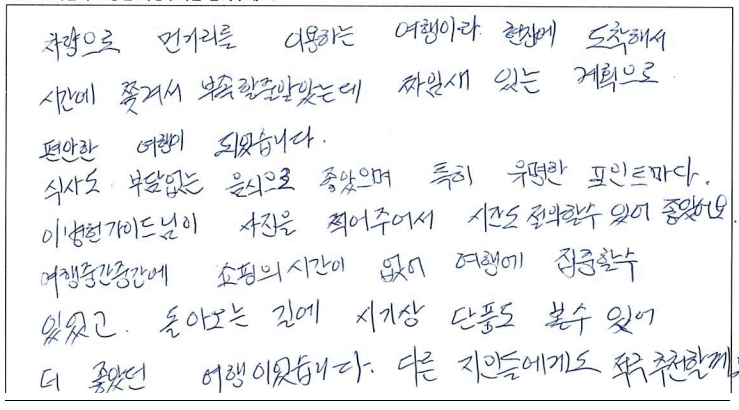 차량으로 먼거리를 이용하는 여행이라 현장에 도착해서
시간에 쫓겨서 부족할줄알았는데 짜임새 있는 계획으로
편안한 여행이 되었습니다.
식사도 부담없는 음식으로 좋았으며 특히 유명한 포인트마다.
이병헌가이드님이 사진을 찍어주어서 시간도 절약할수 있어 좋았어요.
여행중간중간에 쇼핑의 시간이 없어 여행에 집중할수
있었고. 돌아오는 길에 시기상 단풍도 볼수 있어
더 좋았던 여행이었습니다. 다른 지인들에게도 적극추천할께요